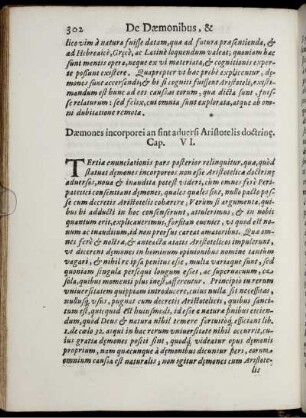 302 De Dæmonibus, &
lico vim à natura fuisse datam, qua ad futura præsentienda, &
ad Hebraicè, Grecè, ac Latinè loquendum valeat, quoniam hæc
sunt mentis opera, neque ex vi materiata, & cognitionis experte
possunt existere. Quapropter ut hæc probè explicentur, dę-
mones sunt accersendi, & si cogniti fuissent Aristoteli, existi-
mandum est hunc ad eos causas rerum, qua dicta sunt, fuis-
se relaturum: sed feixa, cui omnia sunt explorata, atque ab omni
dubitatione remota.
Dæmones incorporei an sint adversi Aristotelis doctrinę.
Cap. VI.
TErtia enunciationis pars posterior relinquitur, qua, quòd
statuas dęmones incorporeos non esse Aristotelica doctrinę
adversus, nova & inaudita potest videri, cùm omnes ferè Peri-
patetici consentiant dęmones, quales quales sint, nullo pacto pos-
se cum decretis Aristotelis cohærere, Verùm si argumenta, qui-
bus hi adducti in hæc consenserunt, attulerimus, & in nobis
quantum erit, explicaverimus, forsitan eveniet, ut quod est no-
vum ac inauditum, id non prorsus careat amatoribus. Qua om-
nes ferè & nostra, & anteacta ætates Aristotelicos impulerunt,
ut decerent dęmonum in hominum opinionibus nomine tantùm
vagari, & nihil re ipsa penitus esse, multa variaque sunt, sed
quoniam singula persequi longum esset ac supervacuum, ea
sola, quibus momenti plus inest, afferentur. Principio in rerum
universitatem quippiam introducere, cuius nulla sit necessitas,
nullusq́; usus, pugnat cum decretis Aristotelicis, quibus sanci-
tum est, quicquid est huiusmodi, id esse à natura finibus exclu-
dendum, quod Deus & natura nihil temerè faciúntq́; efficiant lib.
1. de cœlo 32. at qui in hac rerum universitate nihil occurrit, cu-
ius gratia dęmones posìti sint, quodq́; videatur opus dęmonis
proprium, nam quæcunque à dæmonibus dicuntur fieri, eorum
omnium causa est naturalis; non igitur dęmones cum Aristote-
lis